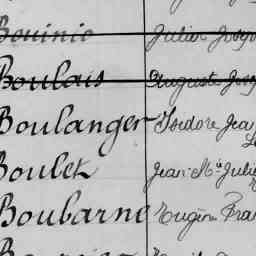 Bouinio Julien Josep
Boulais Auguste Josep
Boulanger Isidore Jea
Boulet Jean-Mie Julie
Boubarne Eugène Fran